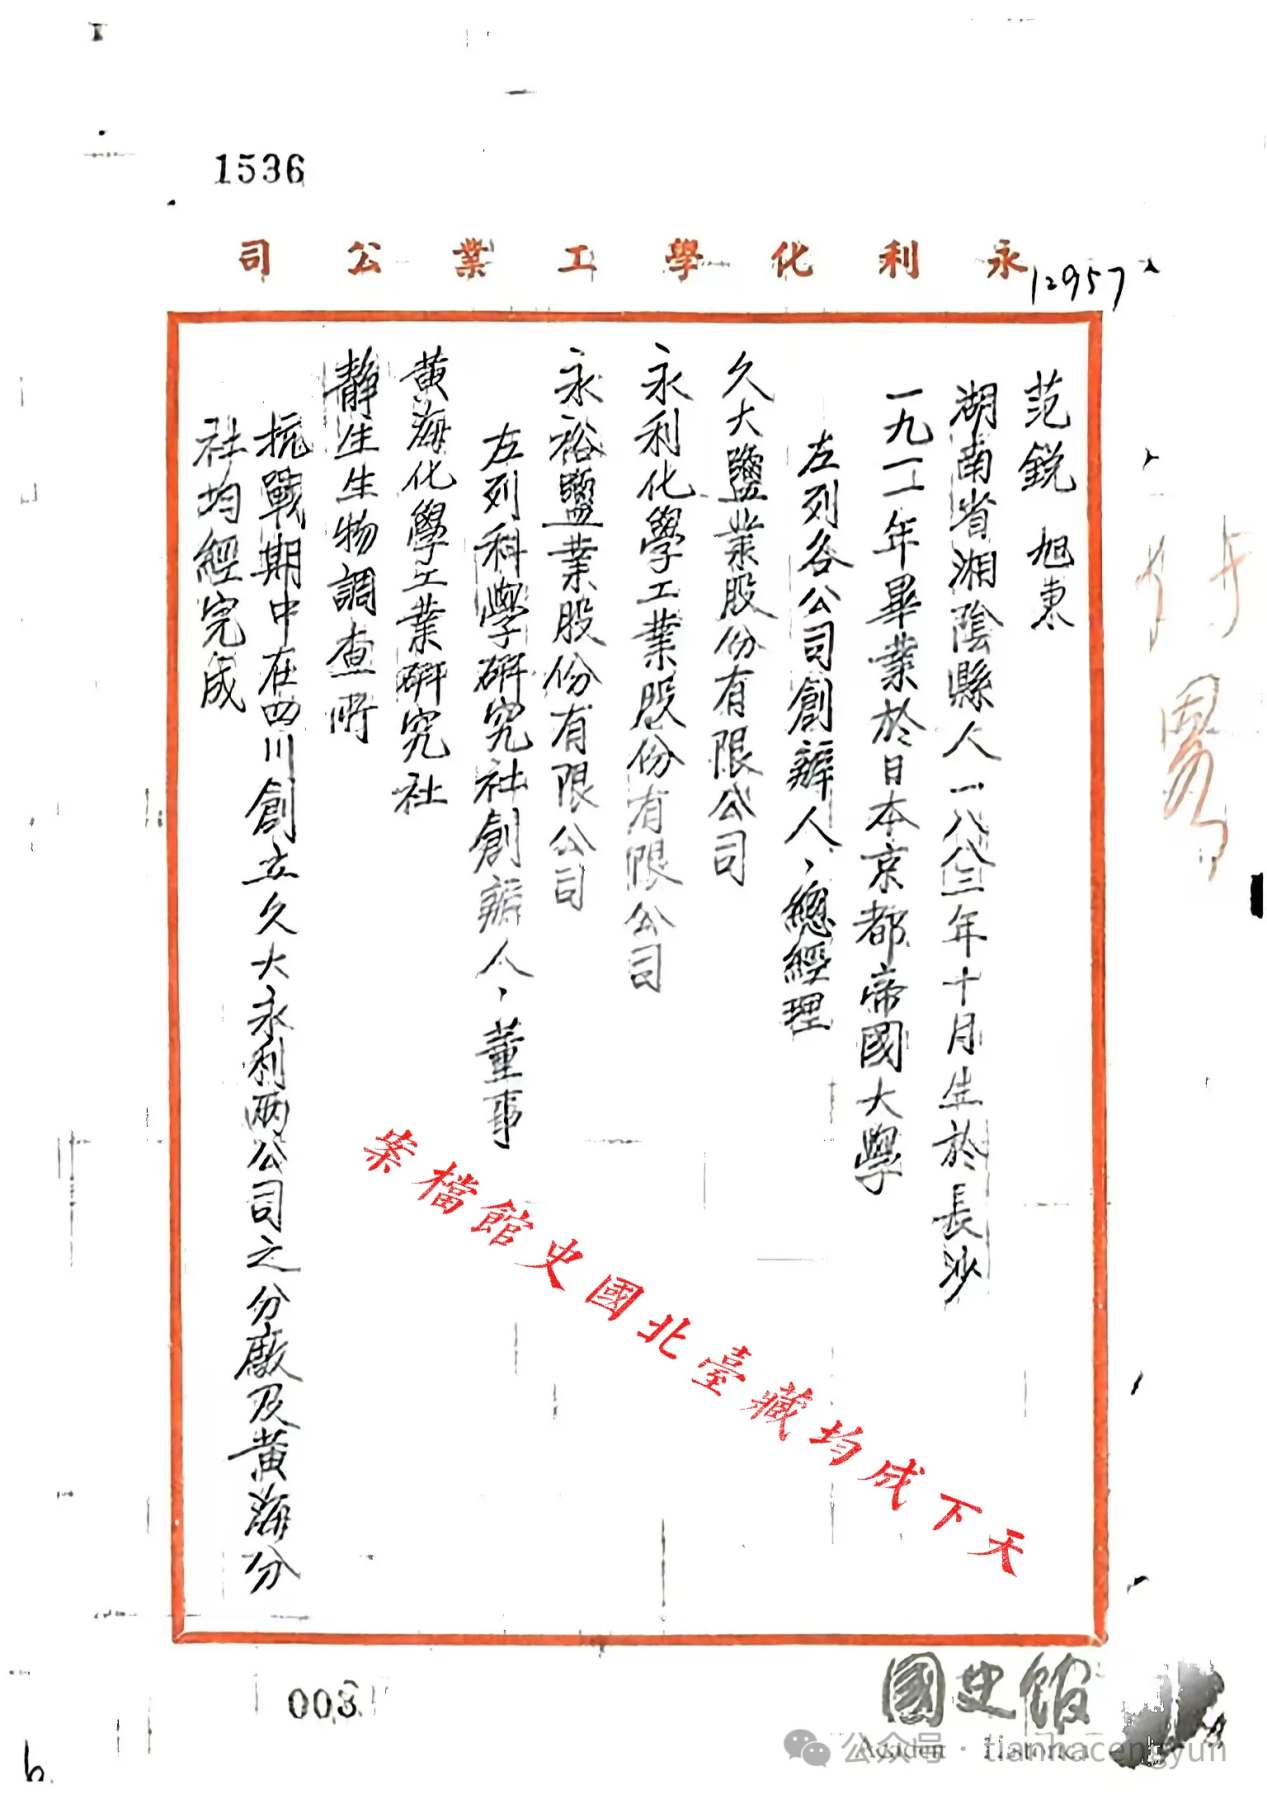 1536
永利化學工業公司
12957
范銳 旭東
湖南省湘陰縣人一八八三年十月生於長沙
一九一一年畢業於日本京都帝國大學
左列各公司創辦人、總經理
久大鹽業股份有限公司
永利化學工業股份有限公司
永裕鹽業股份有限公司
左列科學研究社創辦人、董事
黃海化學工業研究社
靜生生物調查所
抗戰期中在四川創立久大永利兩公司之分廠及黃海分
社均經完成
天下成均藏臺北國史館檔案
003
國史館
公众号 · tianhacengyun